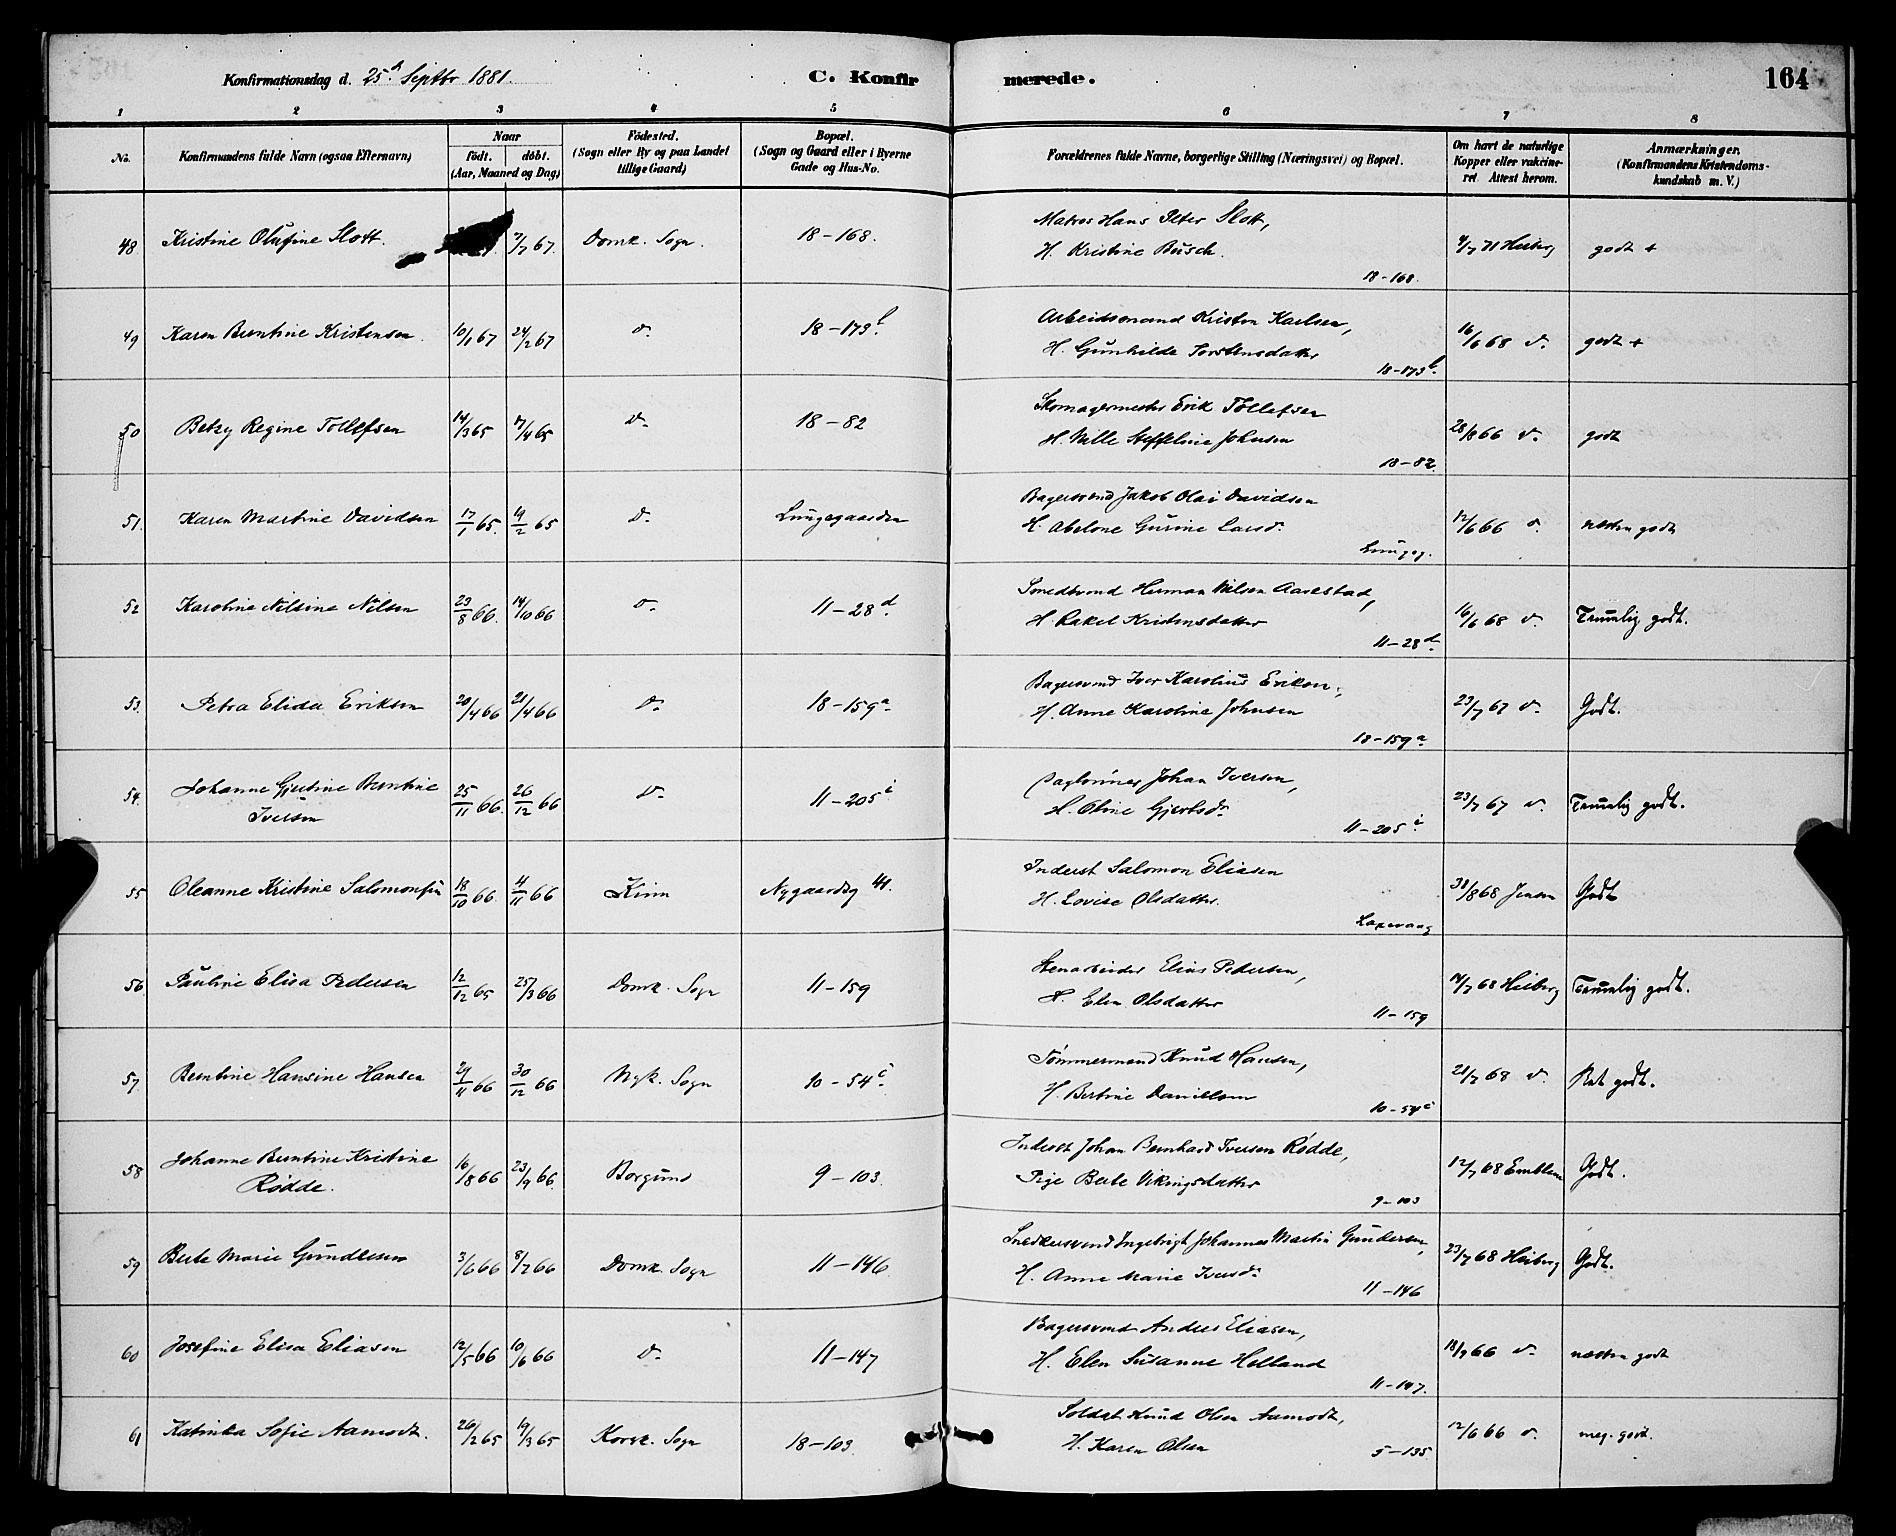 Konfirmationsdag d. 25de Septbr 1881.
C. Konfirmerede.
164
1 2 3 4 5 6 7 8
No.
Konfirmandens fulde Navn (ogsaa Efternavn)
Naar
födt. döbt.
(Aar, Maaned og Dag)
Födested.
(Sogn eller By og paa Landet
tillige Gaard)
Bopæl.
(Sogn og Gaard eller i Byerne
Gade og Hus-No.
Forældrenes fulde Navne, borgerlige Stilling (Næringsvei) og Bopæl.
Om havt de naturlige
Kopper eller vakcine-
ret. Attest herom.
Anmærkninger.
(Konfirmandens Kristendoms-
kundskab m. V.)
48 Kristine Olufine Slott. 7/7 67. Domk. Sogn. 18-168. Matros Hans Peter Slott,
H. Kristine Busch. 4/7 71 Heiberg godt +
18-168.
49 Karen Berntine Kristensen. 10/1 67 24/2 67 do 18-173 b. Arbeidsmand Kristen Karlsen,
H. Gunhilde Torstensdatter 16/6 68 do godt +
18-173 b.
50 Betzy Regine Tollefsen 14/3 65 17/4 65 do 18-82 Skomagermester Erik Tollefsen
H. Nille Steffeline Johnsen 28/8 66 do godt
18-82.
51. Karen Martine Davidsen 17/1 65. 4/2 65 do Lungegaarden Bagersvend Jakob Olai Davidsen
H. Abelone Gurine Larsdr. 12/6 66 do næsten godt
Lungeg.
52 Karoline Nilsine Nilsen 23/8 66. 14/10 66 do 11-28 d. Smedsvend Herman Nilsen Aarestad,
H. Rakel Kristensdatter 16/6 68 do Temmelig godt.
11-28 d.
53. Petra Elida Eriksen 20/4 66 21/4 66 do 18-159 a. Bagersvend Iver Karolius Eriksen,
H. Anne Karoline Johnsen 23/7 67 do Godt.
18-159 a.
54. Johanne Gjertine Berntine
Iversen 25/11 66. 26/12 66 do 11-205 i Dagleiner Johan Iversen,
H. Oline Gjertsdr. 23/7 67 do Temmelig godt.
11-205 i
55 Oleanne Kristine Salomonsen 18/10 66. 4/11 66 Kinn Nygaardsg 41. Inderst Salomon Eliasen
H. Lovise Olsdatter. 31/8 68 Jensen Godt
Laxevaag
56 Pauline Elisa Pedersen 12/12 65 25/3 66 Domk. Sogn 11-159 Stenarbeider Elias Pedersen,
H. Elen Olsdatter 14/7 68 Heiberg Temmelig godt.
11-159
57. Berntine Hansine Hansen 24/11 66 30/12 66 Nyk. Sogn 10-54 c. Tømmermand Knud Hansen,
H. Bertine Danielsen 21/7 68 do Ret godt.
10-54 c
58 Johanne Berntine Kristine
Rødde. 16/8 66 23/9 66. Borgund 9-103. Inderst Johan Bernhard Iversen Rødde,
Pige Berte Vikingsdatter 12/7 68 Emblem Godt.
9-103
59 Berte Marie Gundersen 3/6 66 8/7 66 Domk. Sogn 11-146 Snedkersvend Ingebrigt Johannes Martin Gundersen,
H. Anne Marie Iversdr. 23/7 68 Heiberg Godt.
11-146
60 Josefine Elisa Eliasen 12/5 66 10/6 66 do 11-147 Bagersvend Anders Eliasen,
H. Elen Susanne Helland 18/9 66 do næsten godt
11-147.
61 Katinka Sofie Aamodt. 26/2 65 19/3 65 Korsk. Sogn 18-103. Soldat Knud Olsen Aamodt,
H. Karen Olsen 12/6 66 do meg. godt.
5-135